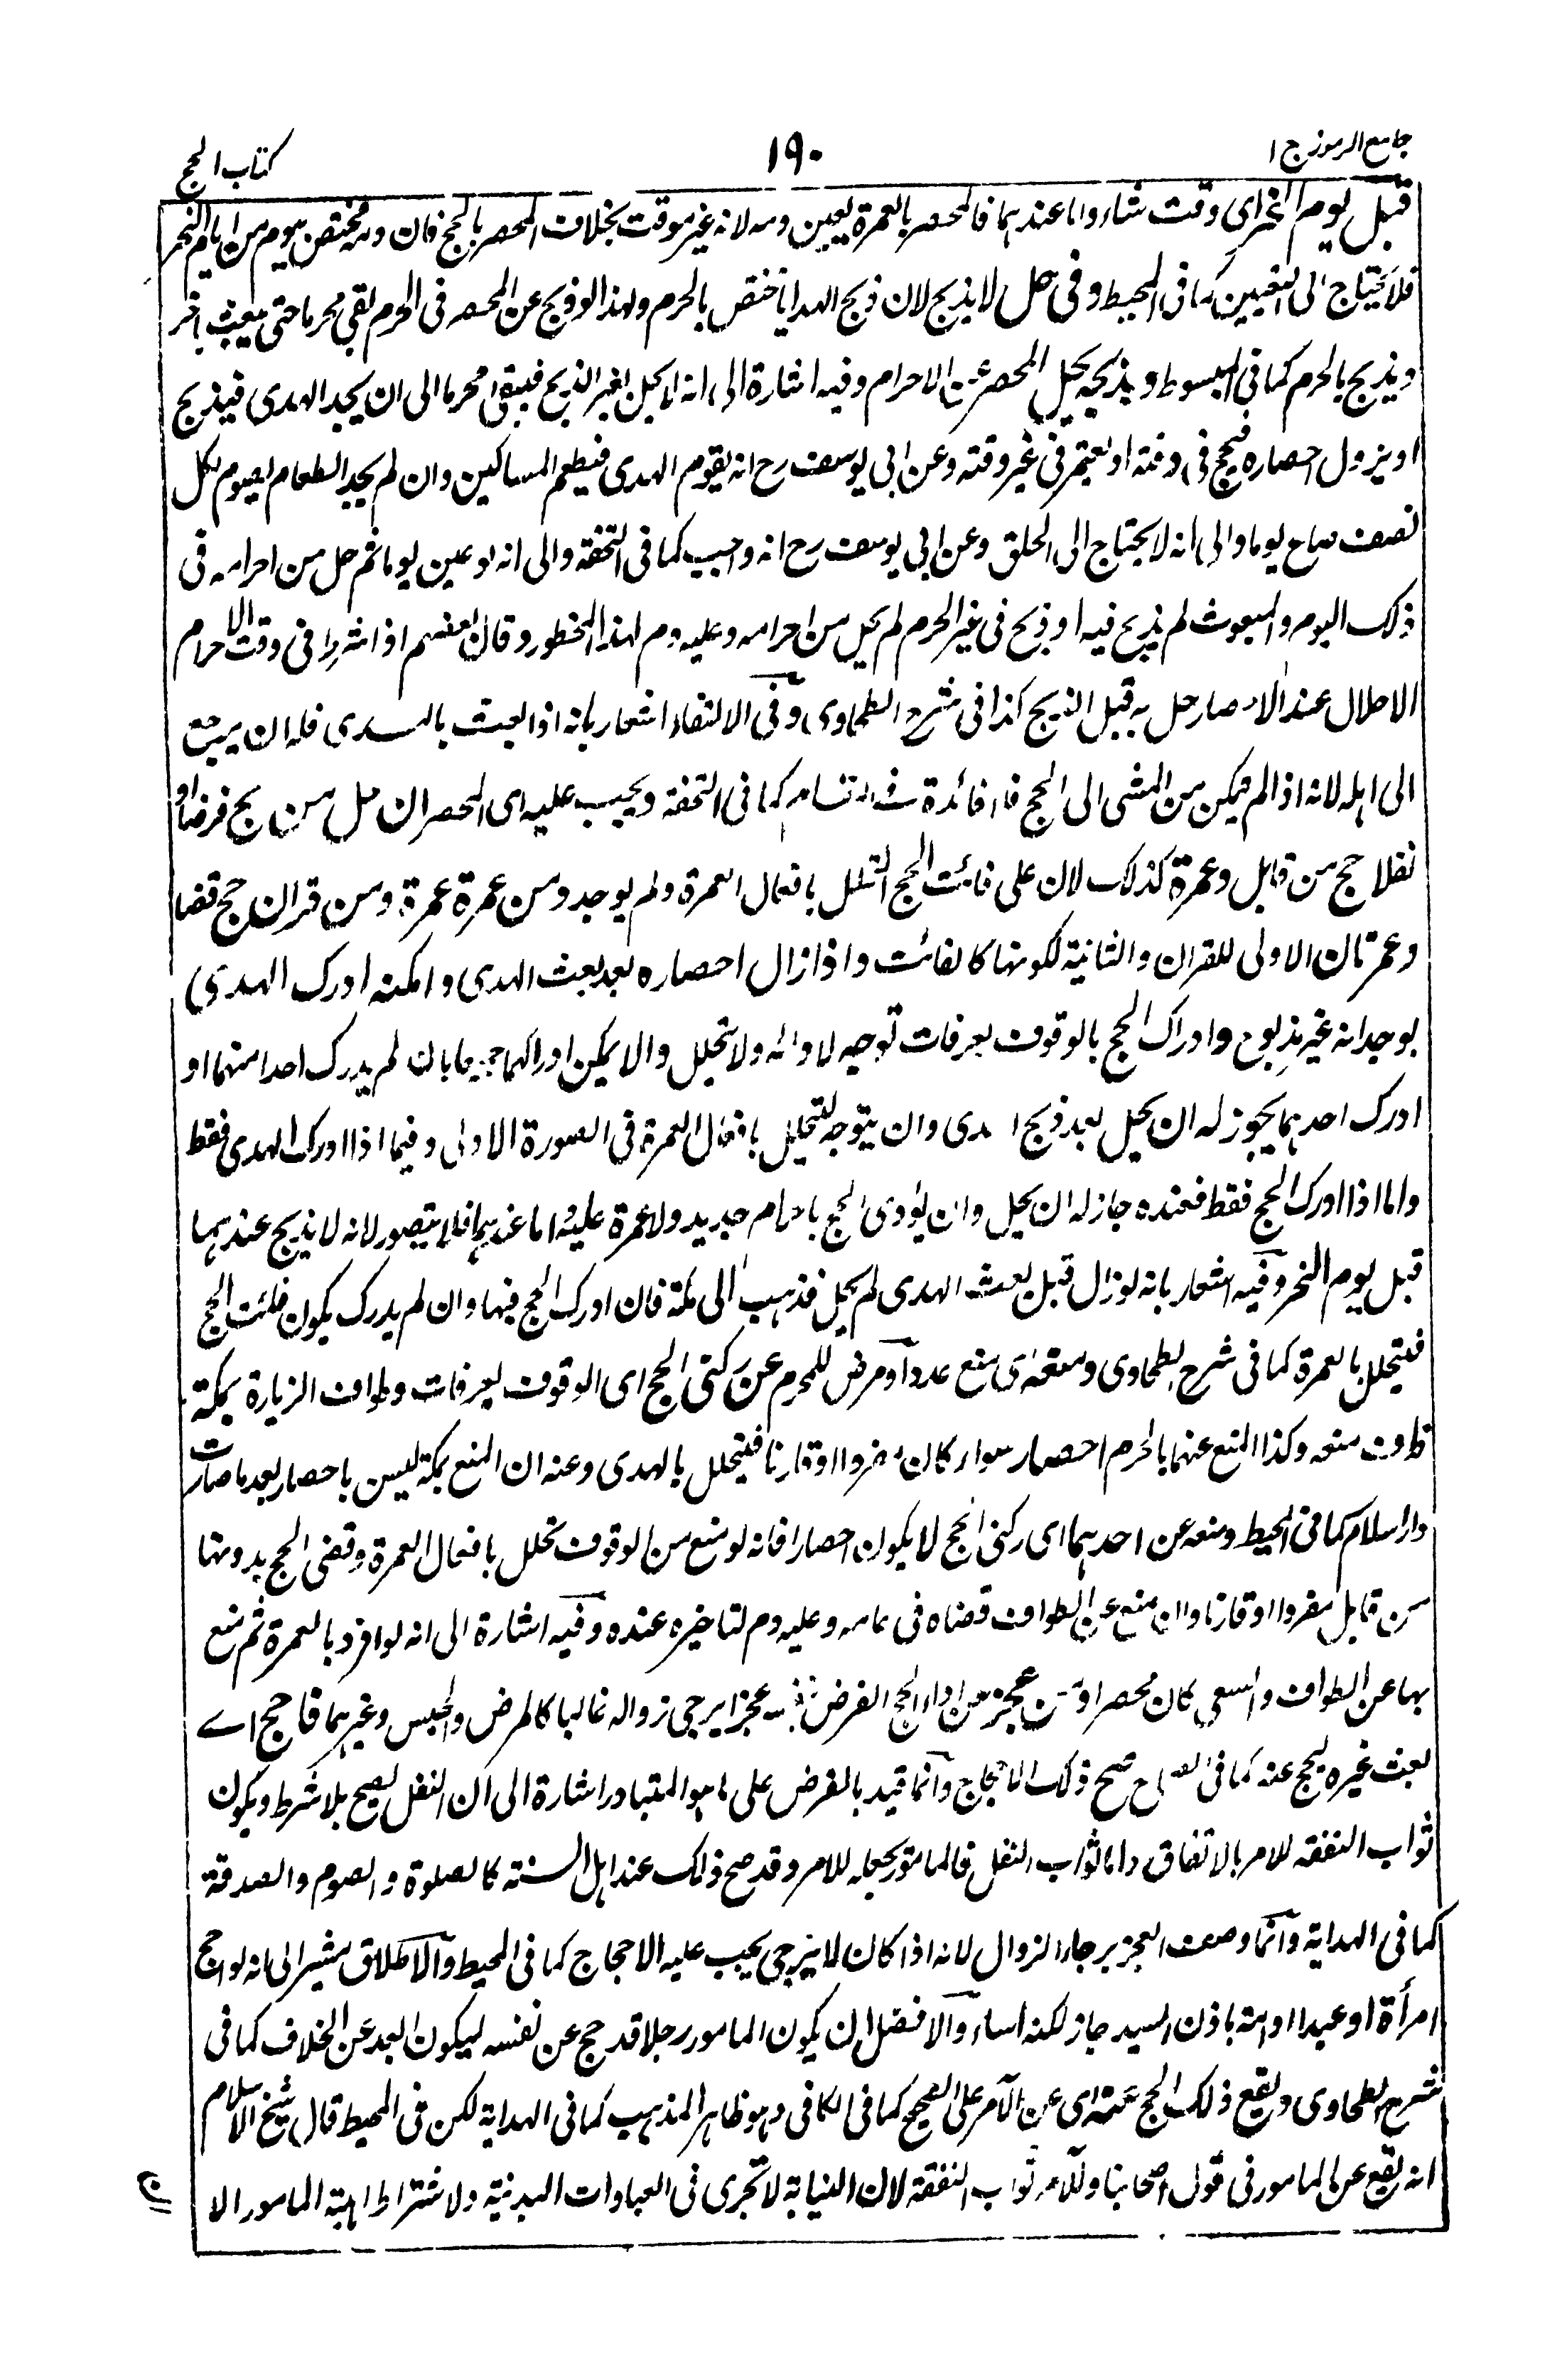 جامع الرموز ج ١
١٩٠
كتاب الحج
قبل يوم النحر اى وقت شاء واما عندهما فالمحصر بالعمرة يعين دمه لانه غير موقت بخلاف المحصر بالحج فان دمه مختص بيوم من ايام النحر
فلا يحتاج الى التعيين كما فى المحيط وفى حل لا يذبح لان ذبح الهدايا تختص بالحرم ولهذا لو ذبح عن المحصر فى الحرم بقى محرما حتى يبعث باخر
ويذبح بالحرم كما فى المبسوط وبذبحه يحل المحصر عن الاحرام وفيه اشارة الى انه لا يحل بغير الذبح فيبقى محرما الى ان يجد الهدى فيذبح
او يزول احصاره فيحج فى وقته او يعتمر فى غير وقته وعن ابى يوسف رح انه يقوم الهدى فيطعم المساكين وان لم يجد الطعام يصوم لكل
نصف صاع يوما والى انه لا يحتاج الى الحلق وعن ابى يوسف رح انه واجب كما فى التحفة والى انه لو عين يوما ثم حل من احرامه فى
ذلك اليوم والمبعوث لم يذبح فيه او ذبح فى غير الحرم لم يحل من احرامه وعليه دم لهذا المحظور وقال بعضهم اذا شرط فى وقت الاحرام
الاحلال عند الاحصار حل به قبل الذبح كذا فى شرح الطحاوى وفى الاكتفاء اشعار بانه اذا بعث بالهدى فله ان يرجع
الى اهله لانه اذا لم يمكن من المشى الى الحج فلا فائدة فى المقام كما فى التحفة ويجب عليه اى المحصر ان حل من حج فرضا او
نفلا حج من قابل وعمرة كذلك لان على فائت الحج التحلل بافعال العمرة ولم يوجد ومن عمرة عمرة ومن قران حج قضا
وعمرتان الاولى للقران والثانية لكونها كالفائت واذا زال احصاره بعد بعث الهدى وامكنه ادرك الهدى
بوجدانه غير مذبوح وادراك الحج بالوقوف بعرفات توجه لادائه ولا يتحلل والا يمكن ادراكهما جميعا بان لم يدرك احدا منهما او
ادرك احدهما يجوز له ان يحل بعد ذبح الهدى وان يتوجه للتحلل بافعال العمرة فى الصورة الاولى وفيما اذا ادرك الهدى فقط
واما اذا ادرك الحج فقط فعنده جاز له ان يحل وان يؤدى الحج باحرام جديد ولا عمرة عليه اما عندهما فلا يتصور لانه لا يذبح عندهما
قبل يوم النحر وفيه اشعار بانه لو زال قبل بعث الهدى لم يحل فذهب الى مكة فان ادرك الحج فبها وان لم يدرك يكون فائت الحج
فيتحلل بالعمرة كما فى شرح الطحاوى ومنعه اى منع عدو او مرض للمحرم عن ركنى الحج اى الوقوف بعرفات وطواف الزيارة بمكة
ظرف منعه وكذا المنع عنهما بالحرم احصار سواء كان مفردا او قارنا فيتحلل بالهدى وعنه ان المنع بمكة ليس باحصار بعد ما صارت
دار اسلام كما فى المحيط ومنعه عن احدهما اى ركنى الحج لا يكون احصارا فانه لو منع من الوقوف تحلل بافعال العمرة وقضى الحج بدونها
من قابل مفردا او قارنا وان منع عن الطواف قضاه فى عامه وعليه دم لتاخيره عنده وفيه اشارة الى انه لو افرد بالعمرة ثم منع
بها عن الطواف والسعى كان محصرا ومن عجز عن اداء الحج الفرض بنفسه عجزا يرجى زواله غالبا كالمرض والحبس وغيرهما فاحج اے
بعث غيره ليحج عنه كما فى الصحاح صح ذلك الاحجاج وانما قيد بالفرض على ما هو المتبادر اشارة الى ان النفل يصح بلا شرط ويكون
ثواب النفقة للامر بالاتفاق واما ثواب النفل فالمامور يجعله للامر وقد صح ذلك عند اهل السنة كالصلوة والصوم والصدقة
كما فى الهداية وانما وصف العجز برجاء الزوال لانه اذا كان لا يرجى يجب عليه الاحجاج كما فى المحيط والاطلاق مشير الى انه لو احج
امرأة او عبدا او امة باذن السيد جاز لكنه اساء والافضل ان يكون المامور رجلا قد حج عن نفسه ليكون ابعد عن الخلاف كما فى
شرح الطحاوى ويقع ذلك الحج عنه اى عن الآمر على الصحيح كما فى الكافى وهو ظاهر المذهب كما فى الهداية لكن فى المحيط قال شيخ الاسلام
انه يقع عن المامور فى قول اصحابنا وللآمر ثواب النفقة لان النيابة لا تجرى فى العبادات البدنية ولاشتراط اهلية المامور الا